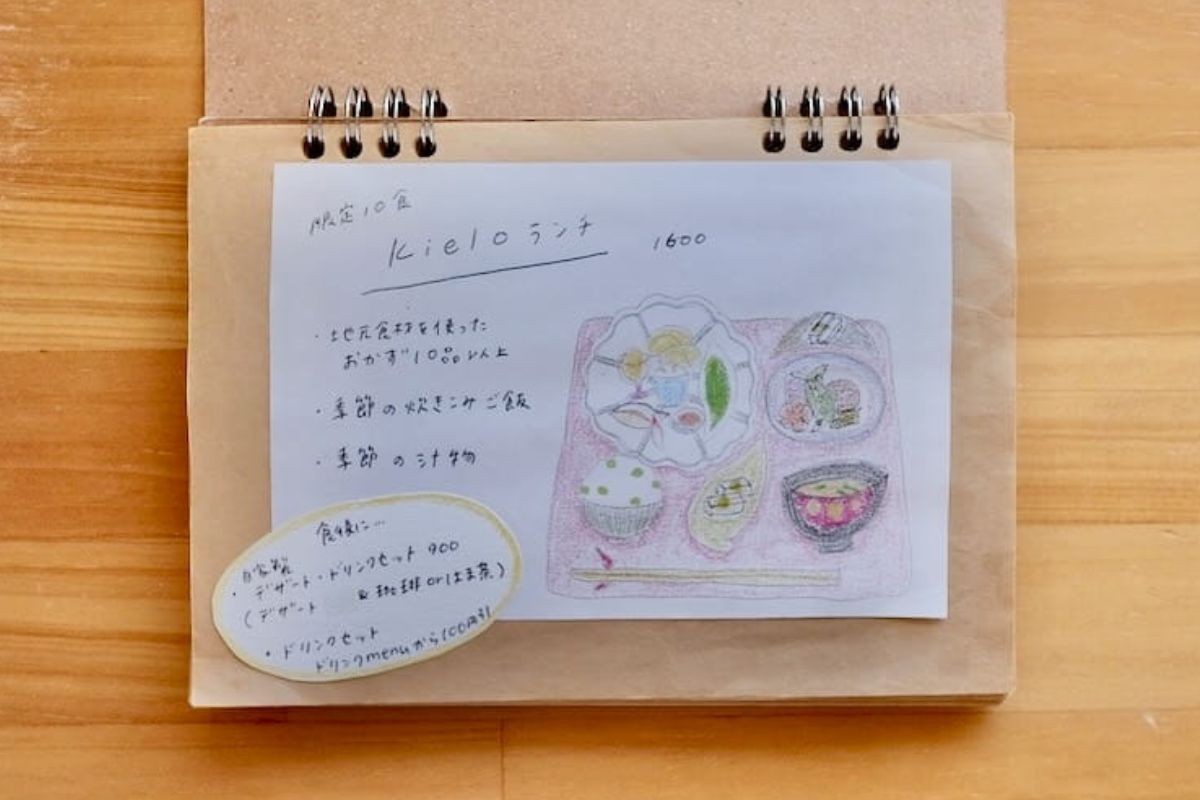 限定10食
Kielo ランチ 1600
・地元食材を使った
おかず10品以上
・季節の炊きこみご飯
・季節の汁物
食後に…
自家製
・デザート・ドリンクセット 900
(デザート & 珈琲 or はま茶)
・ドリンクセット
ドリンクmenuから100円引